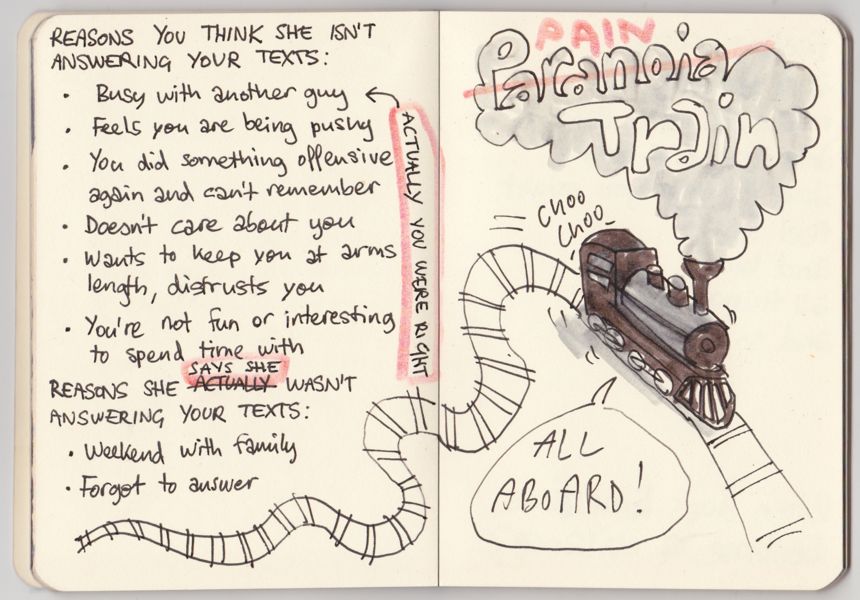 REASONS YOU THINK SHE ISN'T
ANSWERING YOUR TEXTS:
• Busy with another guy
• Feels you are being pushy
• You did something offensive
again and can't remember
• Doesn't care about you
• Wants to keep you at arms
length, distrusts you
• You're not fun or interesting
to spend time with
SAYS SHE
REASONS SHE ACTUALLY WASN'T
ANSWERING YOUR TEXTS:
• Weekend with family
• Forgot to answer
ACTUALLY YOU WERE RIGHT
PAIN
Paranoia
Train
CHOO
CHOO
ALL
ABOARD!